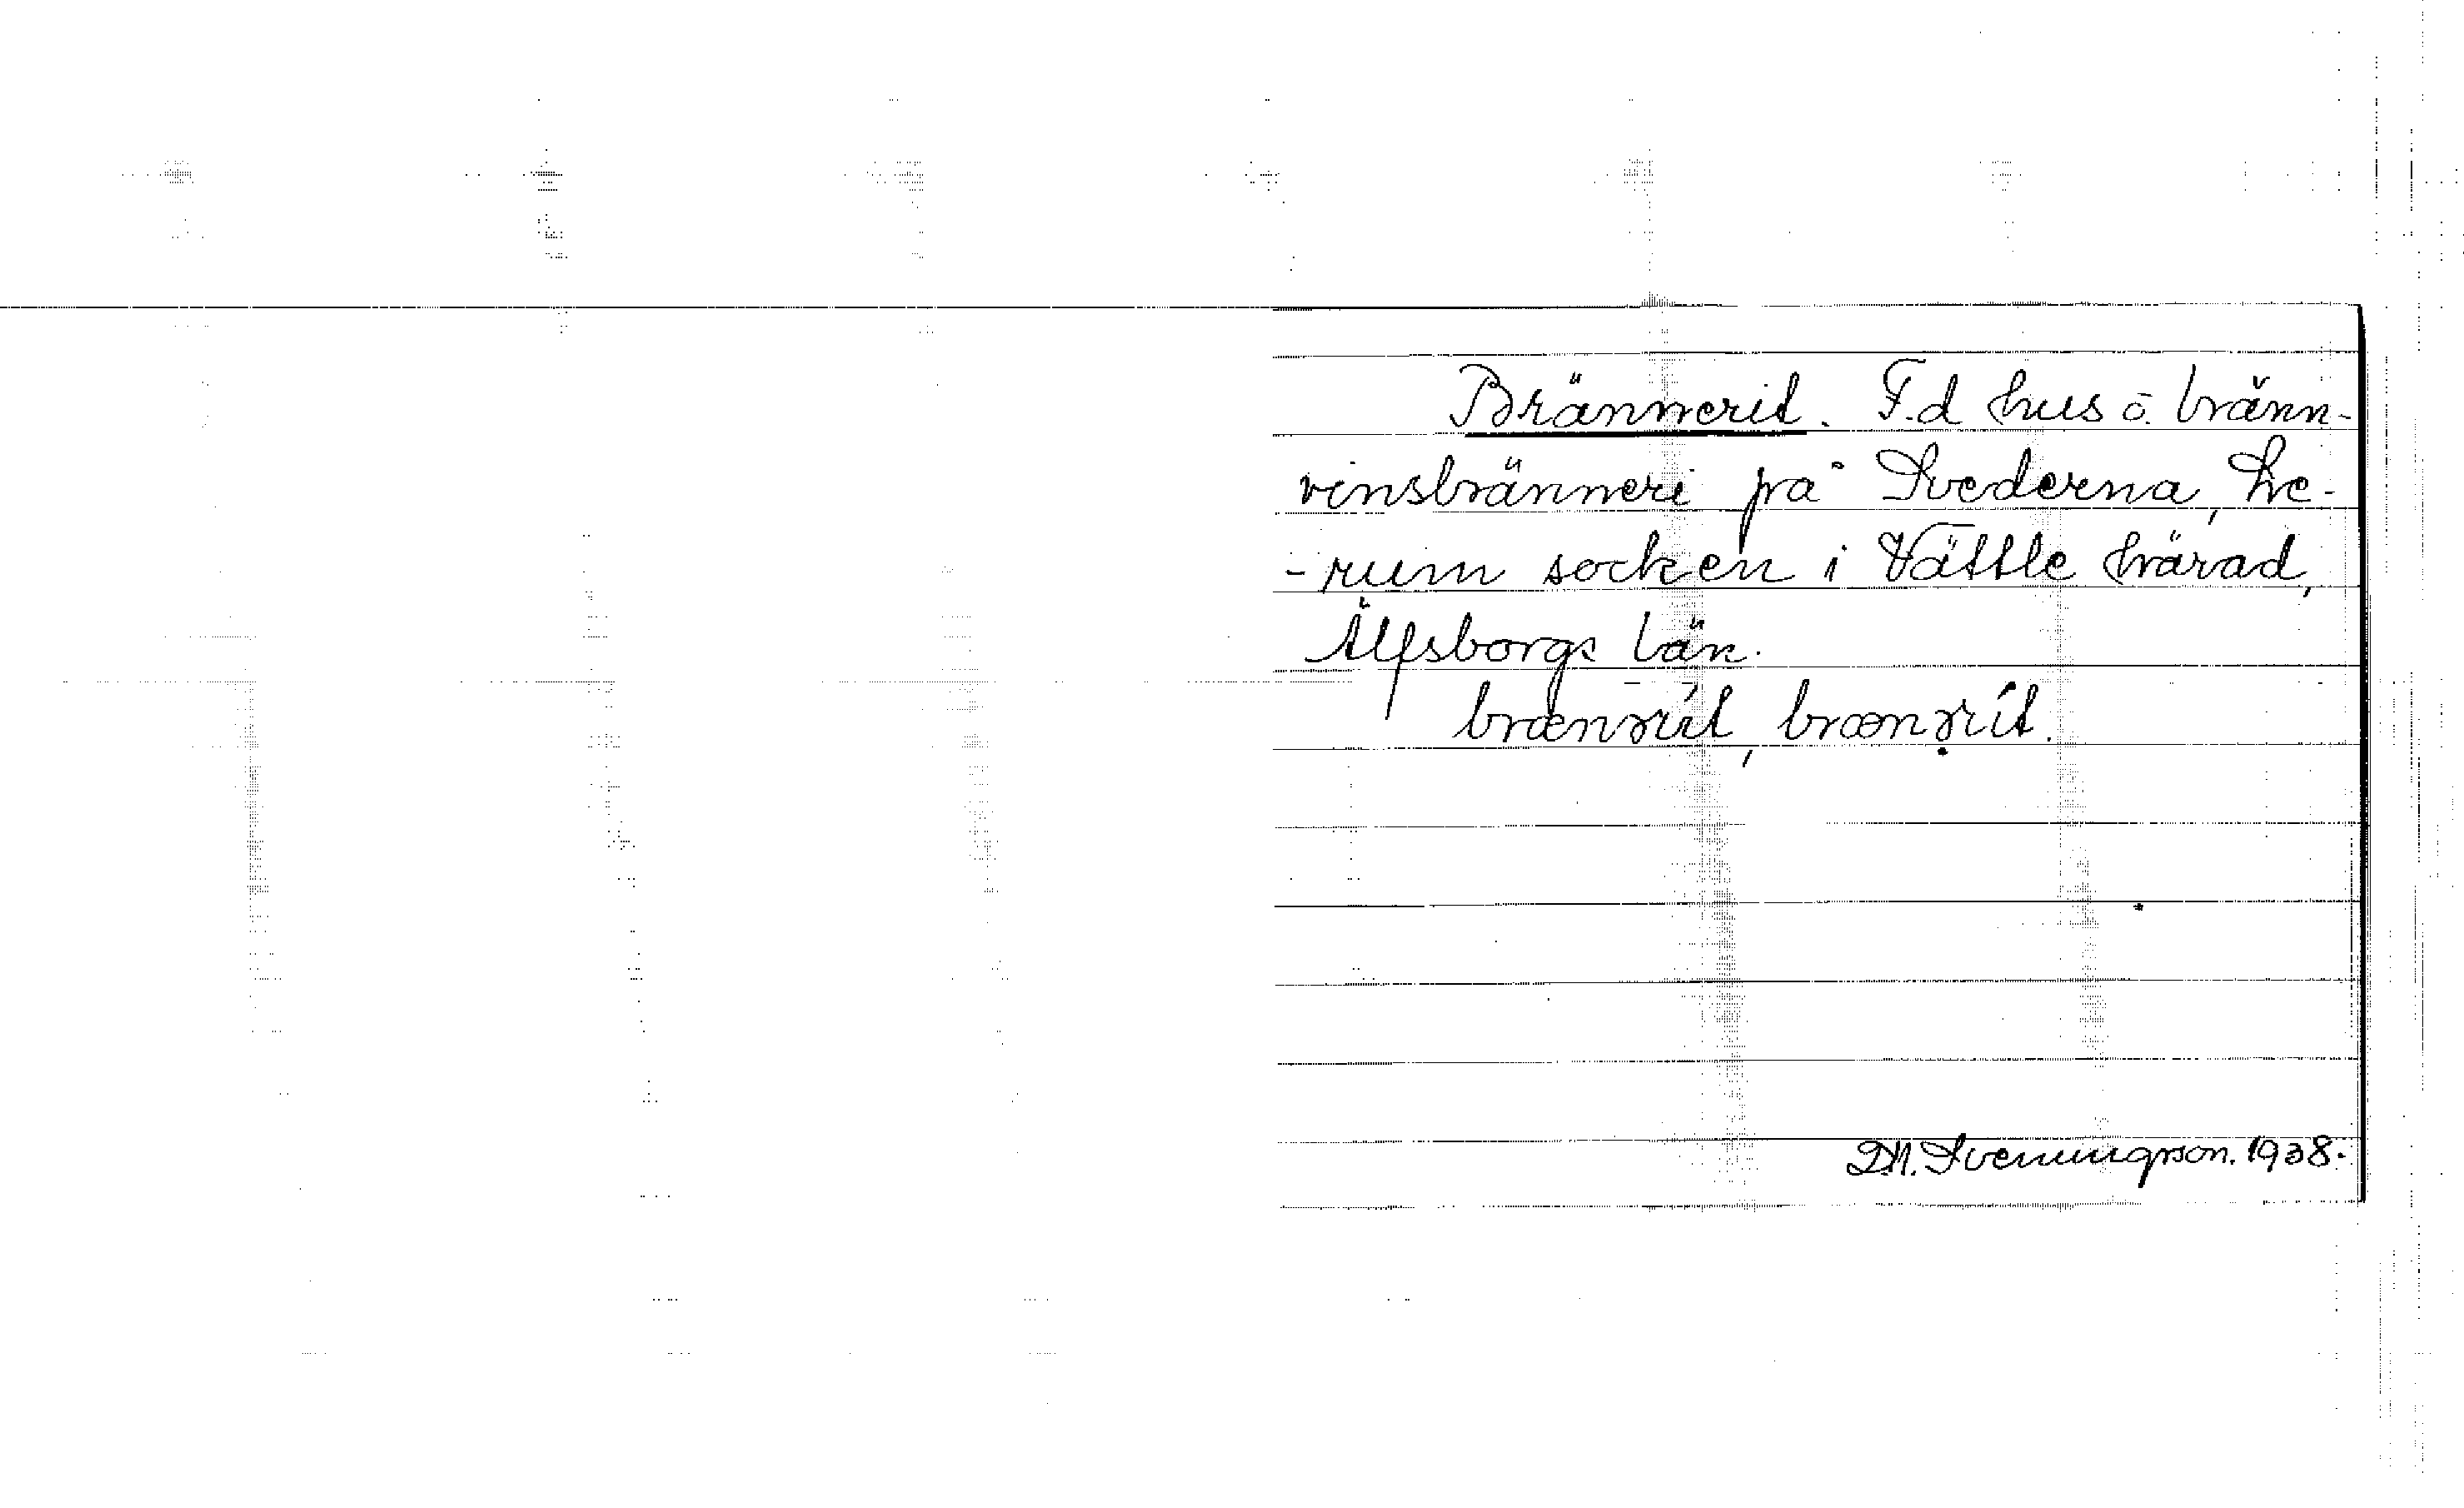 Bränneriet. F.d hus o. bränn-
vinsbränneri på Svederna, Le-
-rum socken i Vättle härad,
Älfsborgs län.
brænrít, brænrít.
D.N. Sveningson. 1938.